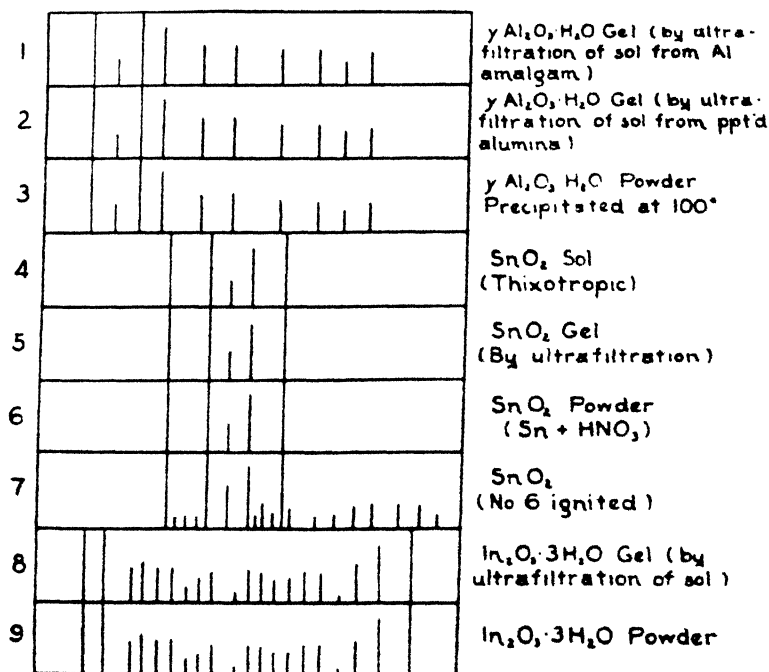 1
γ Al₂O₃·H₂O Gel (by ultra-
filtration of sol from Al
amalgam)
2
γ Al₂O₃·H₂O Gel (by ultra-
filtration of sol from ppt'd
alumina)
3
γ Al₂O₃ H₂O Powder
Precipitated at 100°
4
SnO₂ Sol
(Thixotropic)
5
SnO₂ Gel
(By ultrafiltration)
6
SnO₂ Powder
(Sn + HNO₃)
7
SnO₂
(No 6 ignited)
8
In₂O₃·3H₂O Gel (by
ultrafiltration of sol)
9
In₂O₃·3H₂O Powder